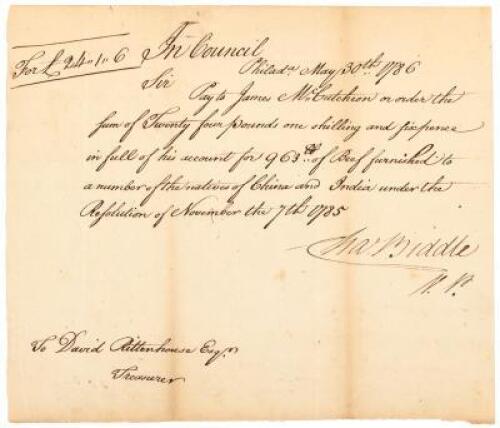 For £24‥1‥6 In Council
Philada. May 30th. 1786
Sir
Pay to James McCutcheon or order the
sum of Twenty four pounds one shilling and sixpence
in full of his account for 963 lb. of Beef furnished to
a number of the natives of China and India under the
Resolution of November the 7th 1785
Chas Biddle
V. P.
To David Rittenhouse Esqr.
Treasurer